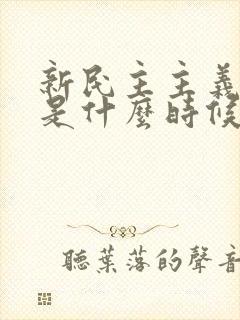 新民主主義
是什麼時候
聽葉落的聲音